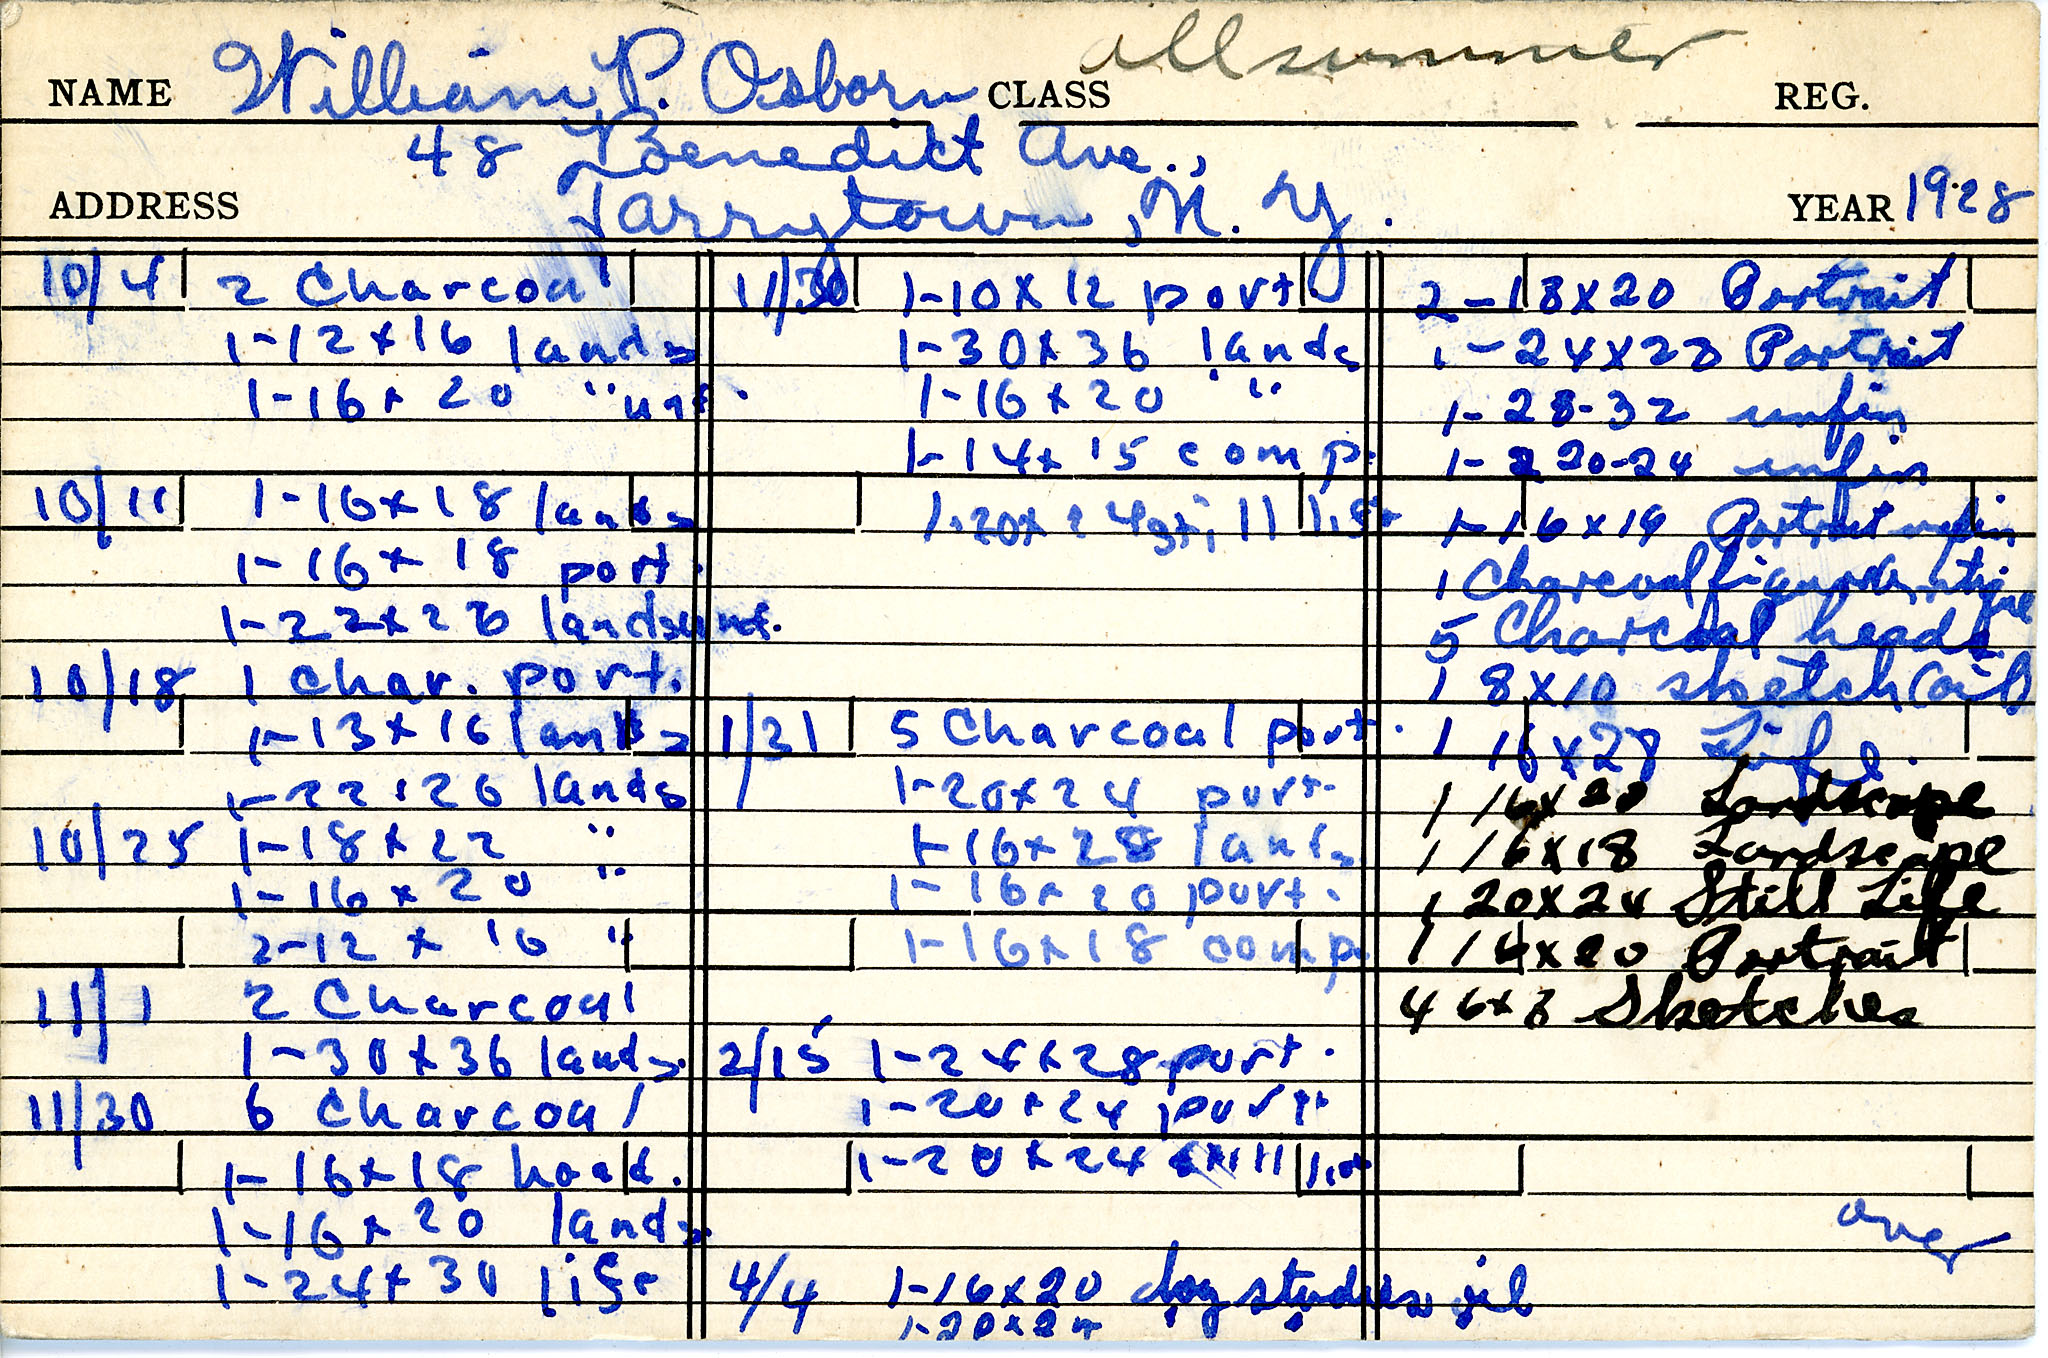 all summer
NAME William P. Osborn CLASS REG.
48 Benedict Ave.,
ADDRESS Tarrytown, N. Y. YEAR 1928
10/4 2 Charcoal
1-12x16 lands
1-16x20 " unf.
10/11 1-16x18 lands
1-16x18 port.
1-22x26 lands unf.
10/18 1 Char. port.
1-13x16 lands
1-22x26 lands
10/25 1-18x22 "
1-16x20 "
2-12x16 "
11/1 2 Charcoal
1-30x36 lands.
11/30 6 Charcoal
1-16x18 head.
1-16x20 lands
1-24x30 life
11/30 1-10x12 port.
1-30x36 lands
1-16x20 "
1-14x15 comp.
1-20x24 still life
1/31 5 Charcoal port.
1-20x24 port.
1-16x28 lands
1-16x20 port.
1-16x18 comp
2/15 1-24x28 port.
1-20x24 port.
1-20x24 still life
4/4 1-16x20 dog studies oil
1-20x24
2-18x20 Portrait
1-24x28 Portrait
1-28-32 unfin
1-20-24 unfin
1-16x19 Portrait unfin
1 Charcoal figure antique
5 Charcoal heads
1 8x10 sketch (oil)
1 16x28 Life.
1 16x20 Landscape
1 16x18 Landscape
1 20x24 Still Life
1 16x20 Portrait
4 6x8 Sketches
over